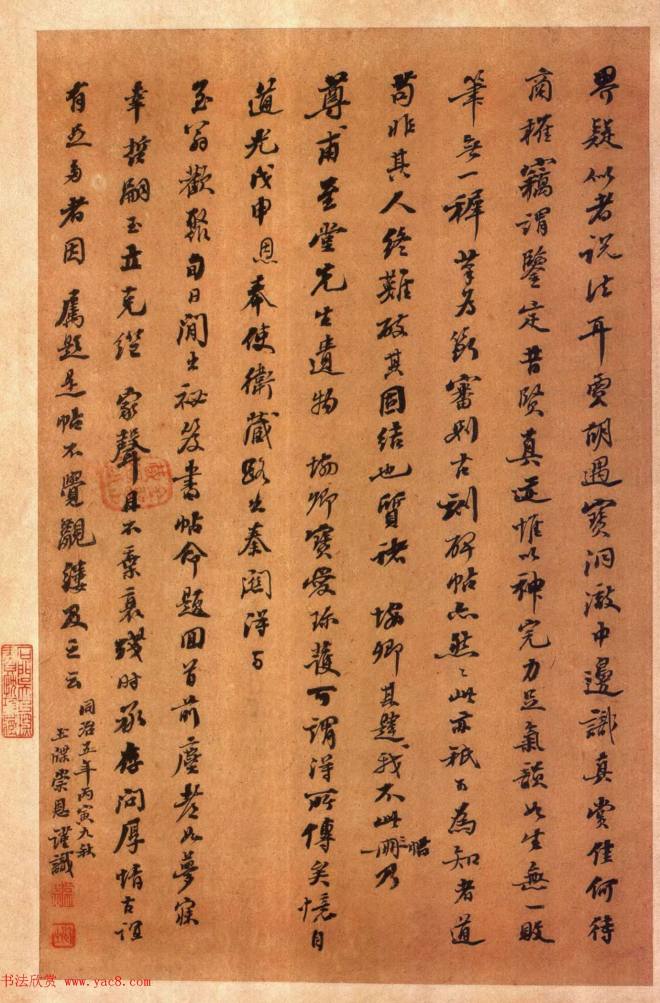 畀疑似者说法耳賈胡遇寶洞澈中邊識真賞佳何待
商榷竊謂鑒定昔賢真迹惟以神完力足氣韻如生無一敗
筆無一稗筆為斷審別古刻碑帖亦然此亦祇可為知者道
苟非其人終難破其固結也質諸 卿其韙我不此冊乃
尊甫堂先生遺物 卿寶愛珍護可謂得所傳矣憶自
道光戊申恩奉使衛藏路出秦關得與
翁歡聚旬日間出祕笈書帖命題回首前塵若夢寐
幸哲嗣克繼 家聲且不棄衰殘時承存問厚情古誼
有者因 屬題是帖不覺覼縷及之云
同治五年丙寅九秋
玉牒崇恩謹識
书法欣赏 www.yac8.com